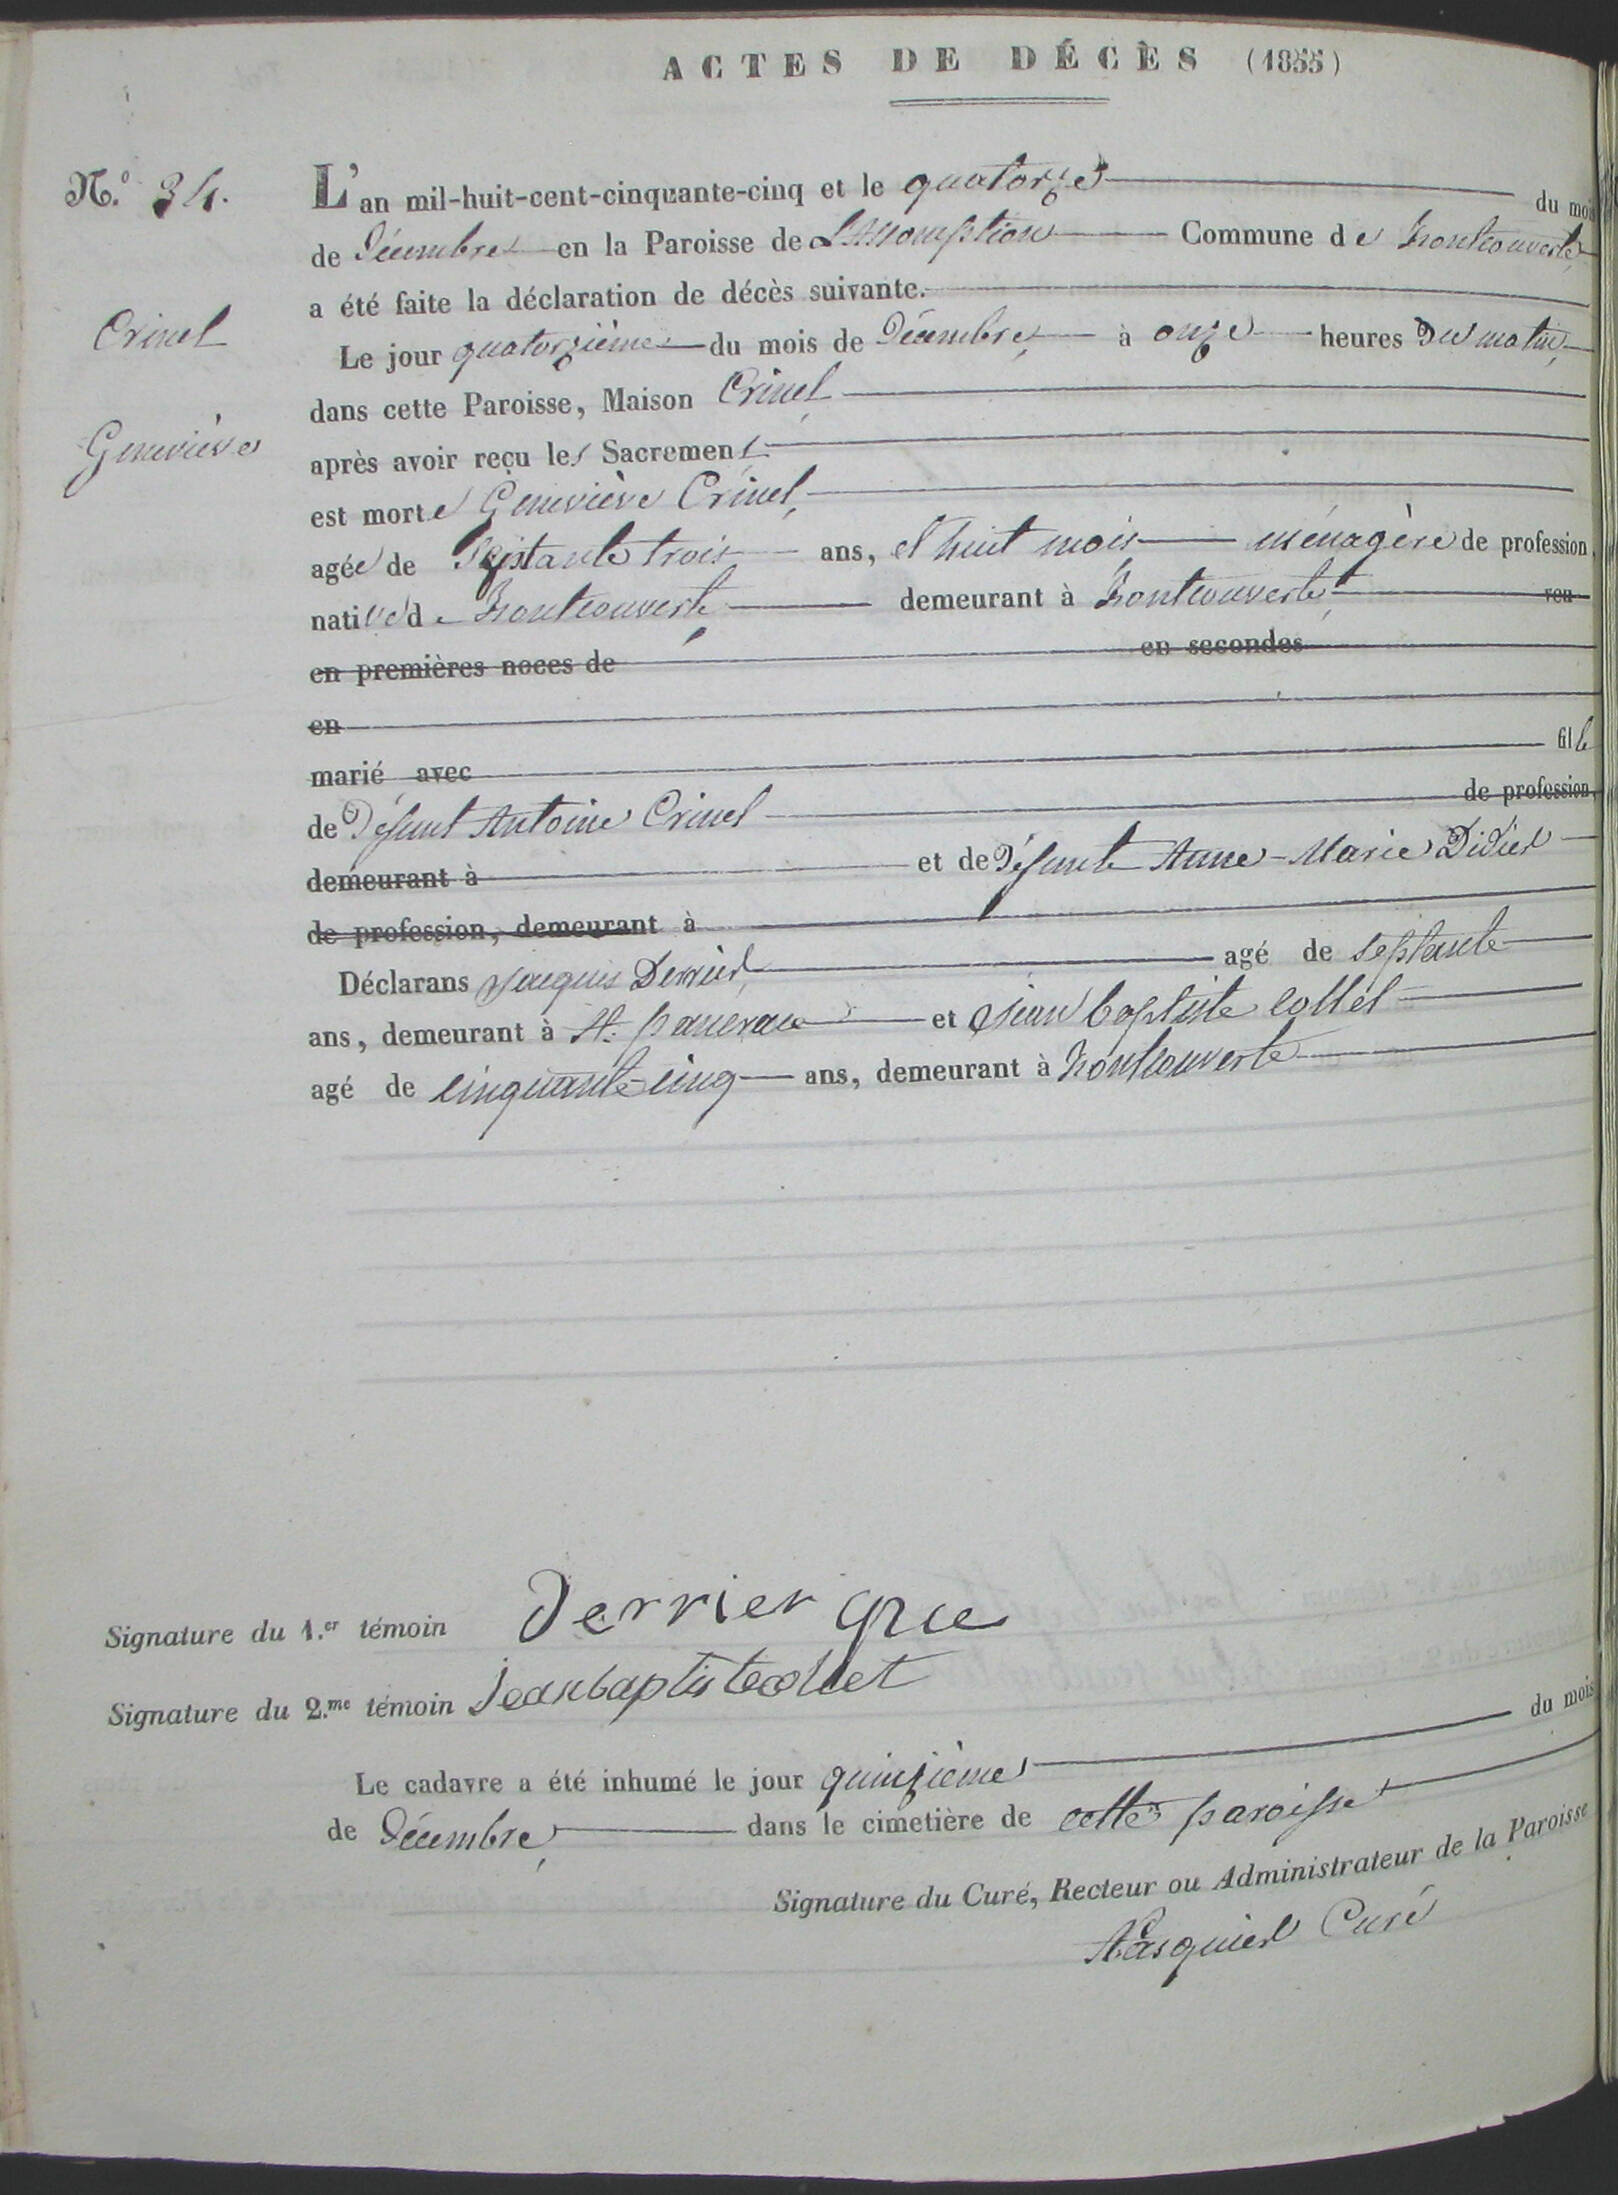 ACTES DE DÉCÈS (1855)
N.º 34.
L'an mil-huit-cent-cinquante-cinq et le quatorze du mois
de Décembre en la Paroisse de L'Assomption Commune de Montcouverte
a été faite la déclaration de décès suivante.
Crinel
Le jour quatorzième du mois de Décembre, à onze heures du matin,
dans cette Paroisse, Maison Crinel
Geneviève
après avoir reçu les Sacremens
est morte Geneviève Crinel,
agée de Septante trois ans, et huit mois ménagère de profession,
native de Montcouverte demeurant à Montcouverte, veu
en premières noces de en secondes
en
marié avec fille
de Défunt Antoine Crinel de profession,
demeurant à et de Défunte Anne-Marie Didier
de profession, demeurant à
Déclarans Jacques Derrier, agé de septante
ans, demeurant à St. pancrace et Jean baptiste Collet
agé de cinquante-cinq ans, demeurant à Montcouverte
Signature du 1.er témoin Derrier Jque
Signature du 2.me témoin Jeanbaptistecollet
Le cadavre a été inhumé le jour quinzième du mois
de Décembre, dans le cimetière de cette paroisse
Signature du Curé, Recteur ou Administrateur de la Paroisse
Pasquier Curé